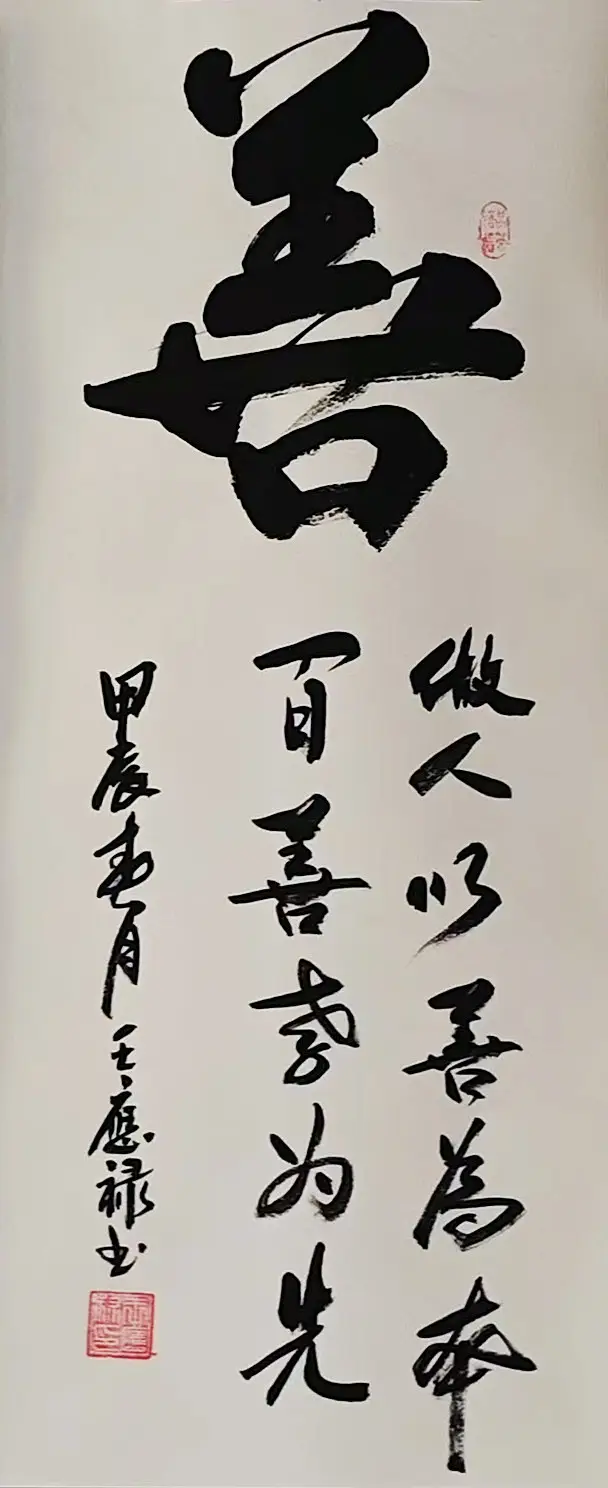 善
做人以善為本
百善孝为先
甲辰春月王應祿书